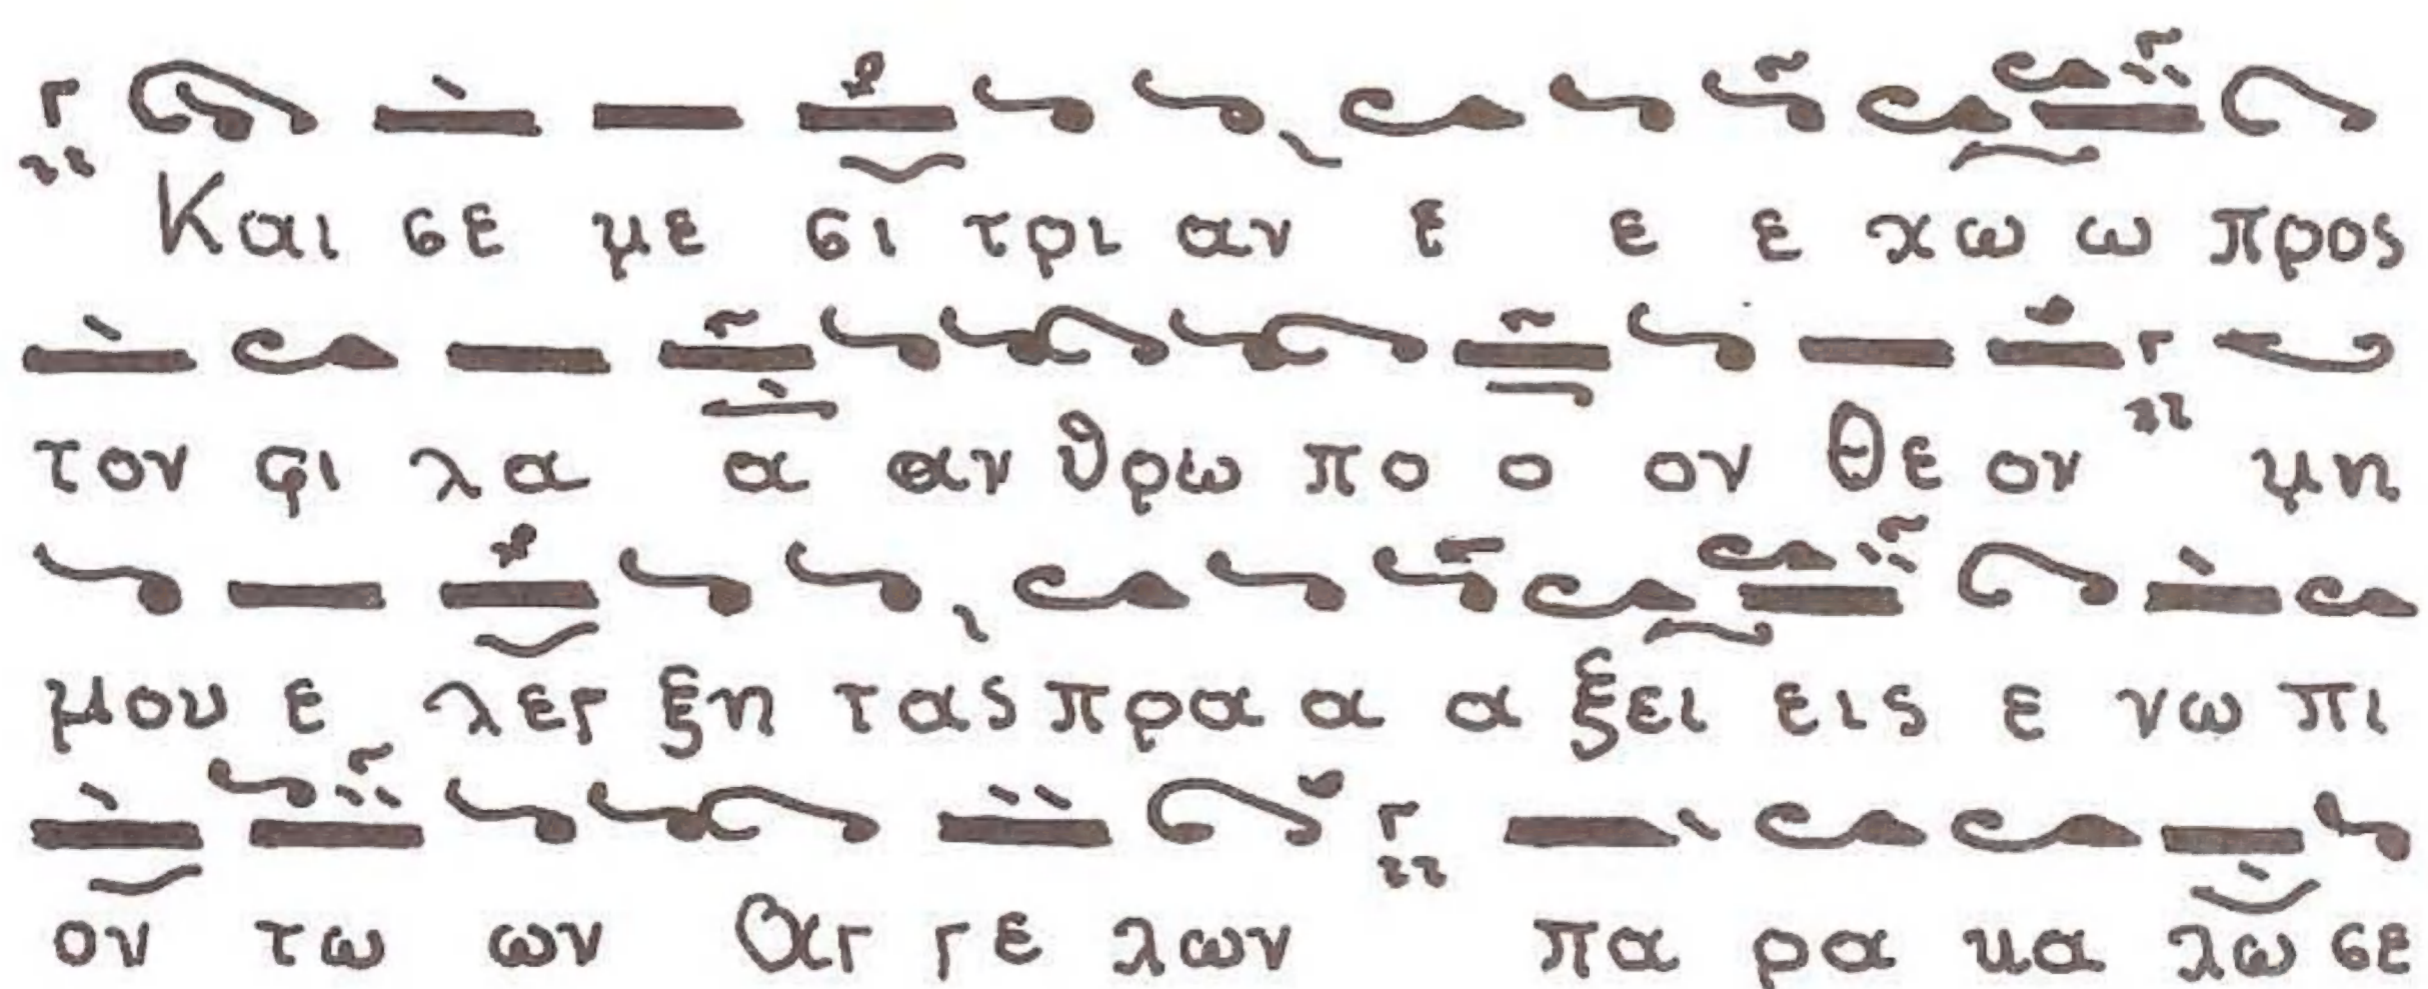 Και σε με σι τρι αν ε ε ε χω ω προς
τον φι λα α αν θρω πο ο ον Θε ον μη
μου ε λεγ ξη τας πρα α α ξει εις ε νω πι
ον τω ων Αγ γε λων πα ρα κα λω σε